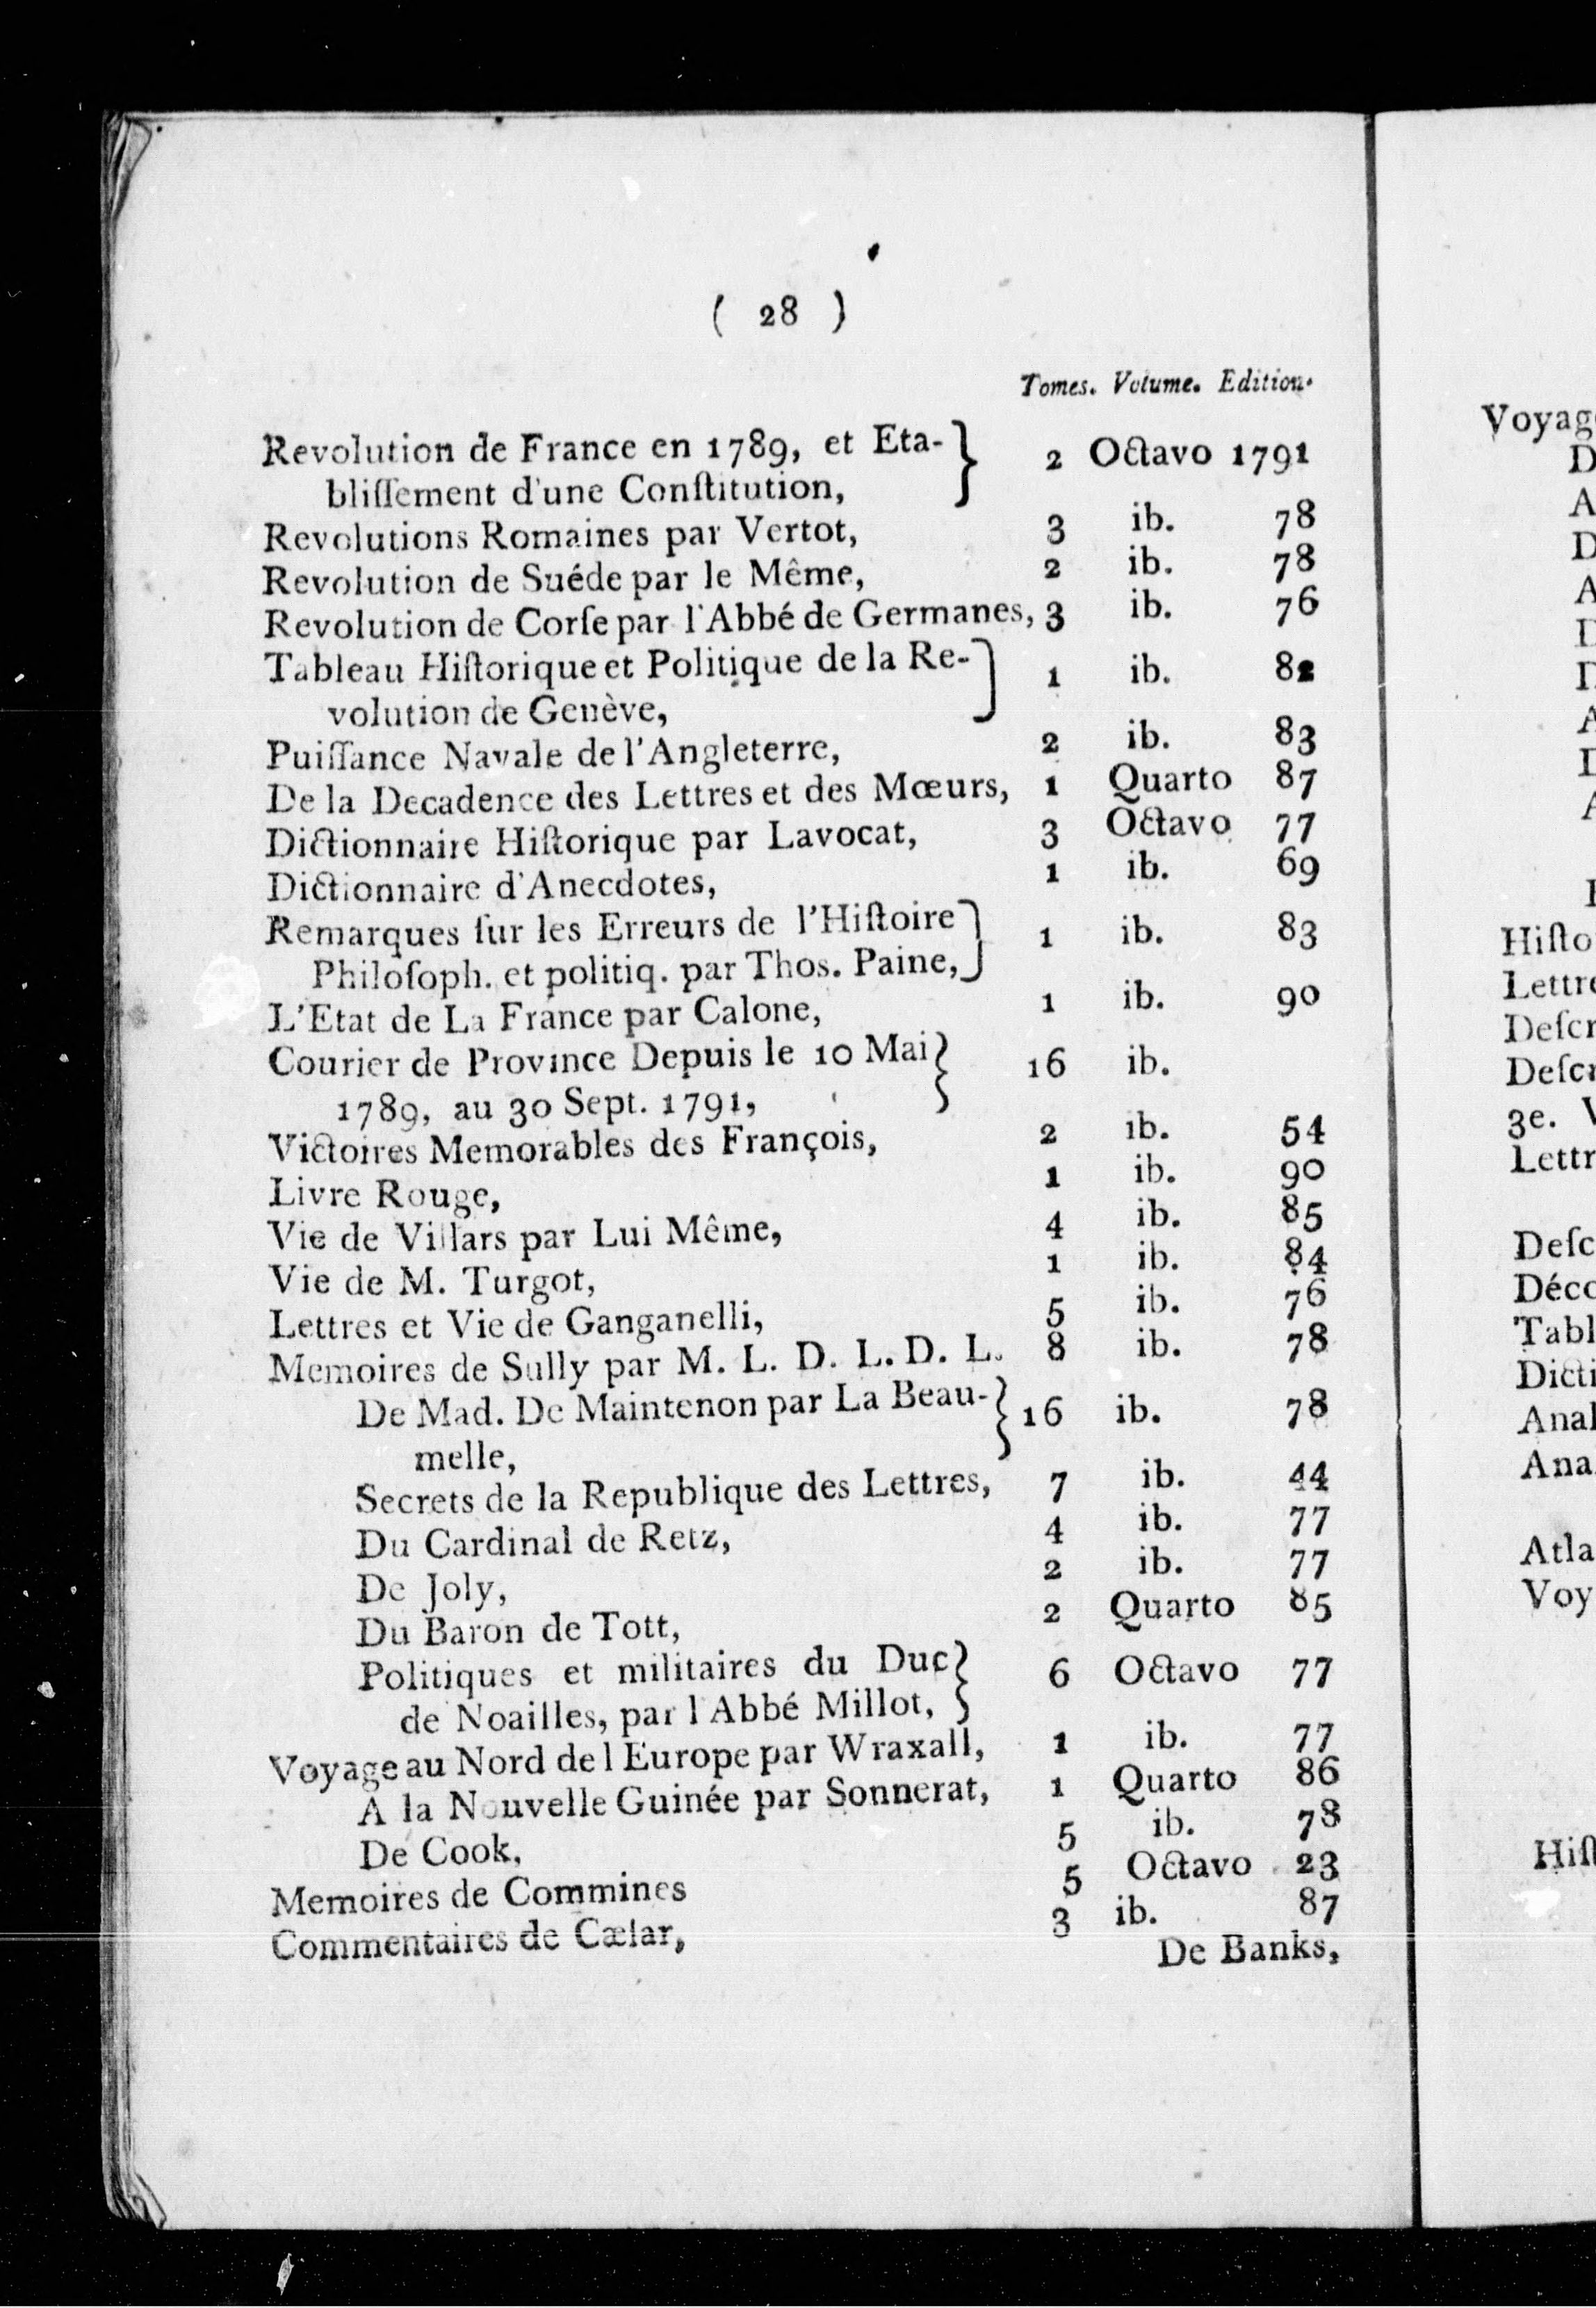 ( 28 )
Tomes. Volume. Edition.
Revolution de France en 1789, et Eta- } 2 Octavo 1791
bliſſement d'une Conſtitution,
Revolutions Romaines par Vertot, 3 ib. 78
Revolution de Suéde par le Même, 2 ib. 78
Revolution de Corſe par l'Abbé de Germanes, 3 ib. 76
Tableau Hiſtorique et Politique de la Re- } 1 ib. 82
volution de Genève,
Puiſſance Navale de l'Angleterre, 2 ib. 83
De la Decadence des Lettres et des Mœurs, 1 Quarto 87
Dictionnaire Hiſtorique par Lavocat, 3 Octavo 77
Dictionnaire d'Anecdotes, 1 ib. 69
Remarques ſur les Erreurs de l'Hiſtoire } 1 ib. 83
Philoſoph. et politiq. par Thos. Paine,
L'Etat de La France par Calone, 1 ib. 90
Courier de Province Depuis le 10 Mai } 16 ib.
1789, au 30 Sept. 1791,
Victoires Memorables des François, 2 ib. 54
Livre Rouge, 1 ib. 90
Vie de Villars par Lui Même, 4 ib. 85
Vie de M. Turgot, 1 ib. 84
Lettres et Vie de Ganganelli, 5 ib. 76
Memoires de Sully par M. L. D. L. D. L. 8 ib. 78
De Mad. De Maintenon par La Beau- } 16 ib. 78
melle,
Secrets de la Republique des Lettres, 7 ib. 44
Du Cardinal de Retz, 4 ib. 77
De Joly, 2 ib. 77
Du Baron de Tott, 2 Quarto 85
Politiques et militaires du Duc } 6 Octavo 77
de Noailles, par l Abbé Millot,
Voyage au Nord de l Europe par Wraxall, 1 ib. 77
A la Nouvelle Guinée par Sonnerat, 1 Quarto 86
De Cook, 5 ib. 78
Memoires de Commines 5 Octavo 23
Commentaires de Cæſar, 3 ib. 87
De Banks,
Voyag
D
A
D
A
D
D
A
D
A
Hiſto
Lettre
Deſcr
Deſcr
3e. V
Lettr
Deſc
Déco
Tabl
Dicti
Anal
Ana
Atla
Voy
Hiſt